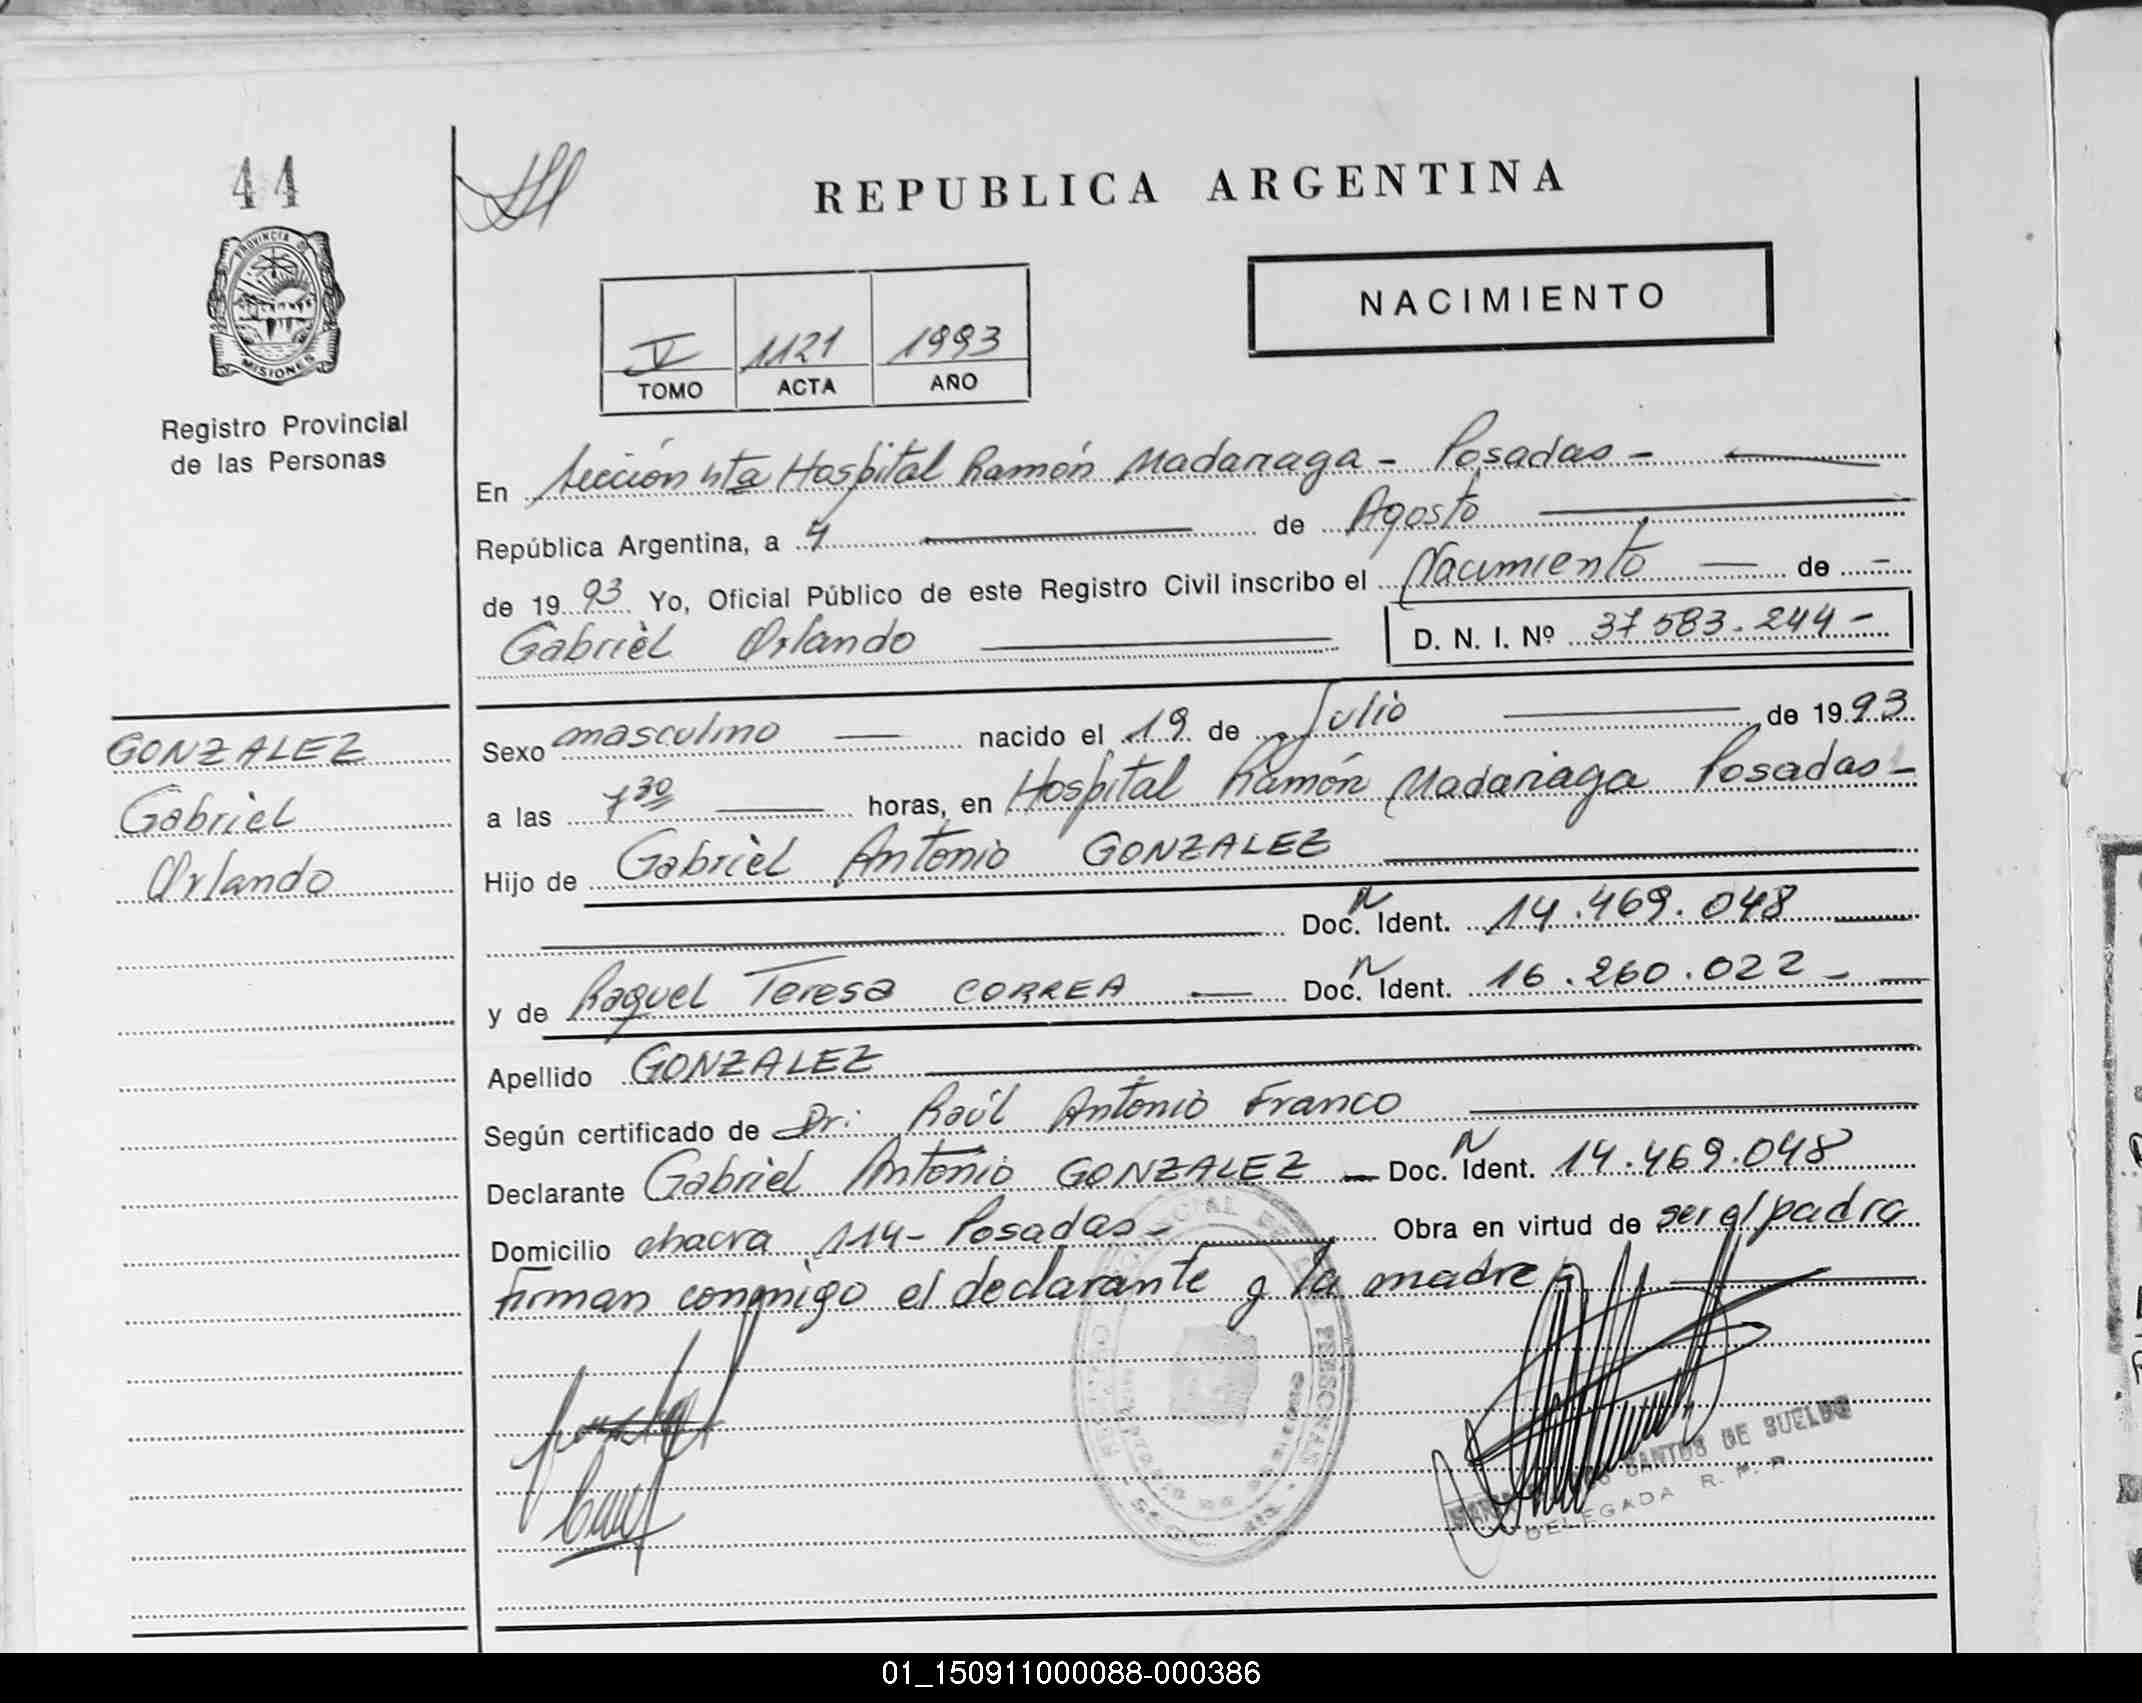 44
PROVINCIA D
MISIONES
Registro Provincial
de las Personas
REPUBLICA ARGENTINA
NACIMIENTO
V 1121 1993
TOMO ACTA AÑO
En Sección 4ta Hospital Ramón Madariaga - Posadas -
República Argentina, a 4 de Agosto
de 1993 Yo, Oficial Público de este Registro Civil inscribo el Nacimiento de -
Gabriel Orlando D. N. I. Nº 37 583.244-
GONZALEZ
Gabriel
Orlando
Sexo masculino nacido el 19 de Julio de 1993
a las 7 30 horas, en Hospital Ramón Madariaga Posadas-
Hijo de Gabriel Antonio GONZALEZ
Doc. N Ident. 14.469.048
y de Raquel Teresa CORREA Doc. N Ident. 16.260.022-
Apellido GONZALEZ
Según certificado de Dr: Raúl Antonio Franco
Declarante Gabriel Antonio GONZALEZ - Doc. N Ident. 14.469.048
Domicilio chacra 114- Posadas- Obra en virtud de ser el padre
Firman conmigo el declarante y la madre
SANTOS DE SUELDO
DELEGADA R. P. P.
01_150911000088-000386